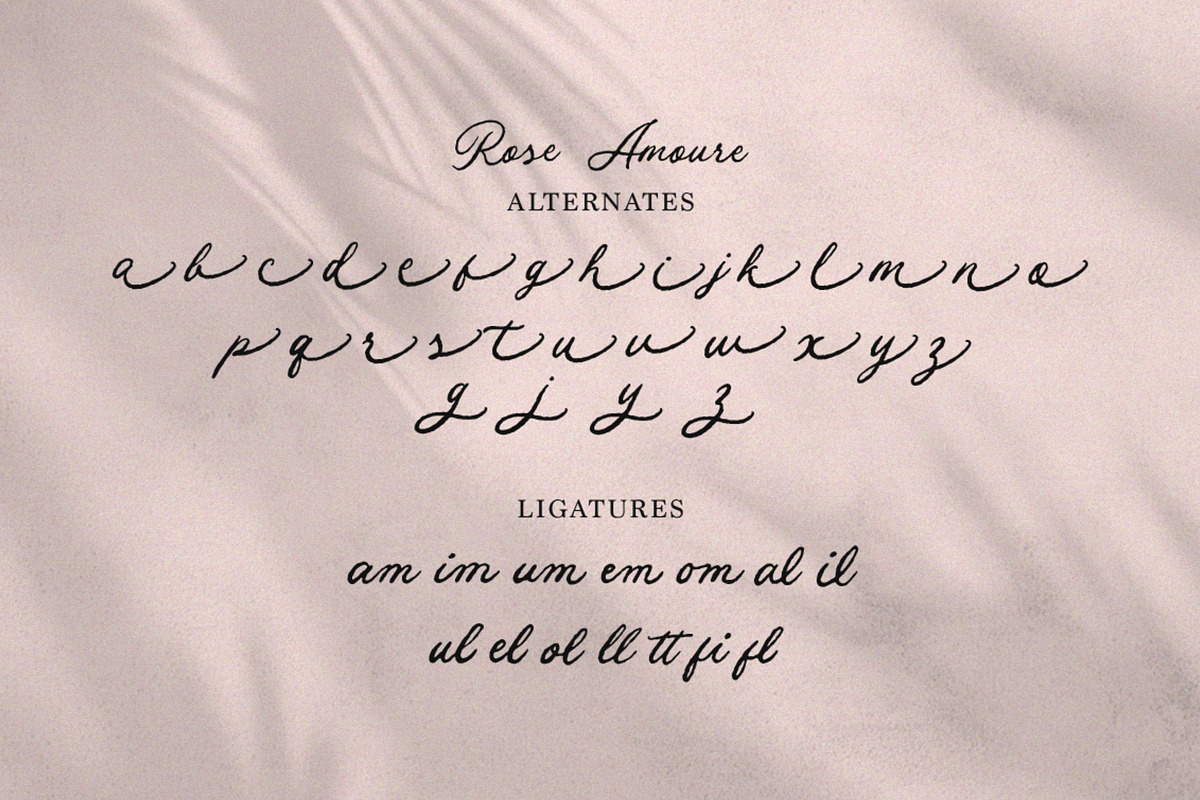 Rose Amoure
ALTERNATES
a b c d e f g h i j k l m n o
p q r s t u v w x y z
g j y z
LIGATURES
am im um em om al il
ul el ol ll tt fi fl